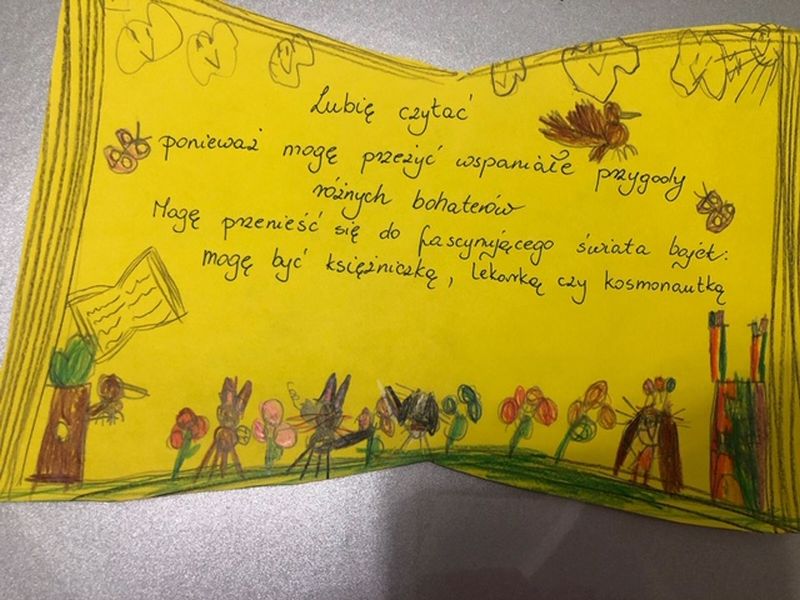 Lubię czytać
ponieważ mogę przeżyć wspaniałe przygody
różnych bohaterów
Mogę przenieść się do fascynującego świata bajek:
mogę być księżniczką, lekarką czy kosmonautką